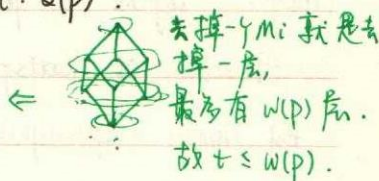 α(P).
去掉一个Mi 就是去
掉一层,
⇐
最多有 w(P) 层.
故 t ≤ w(P).